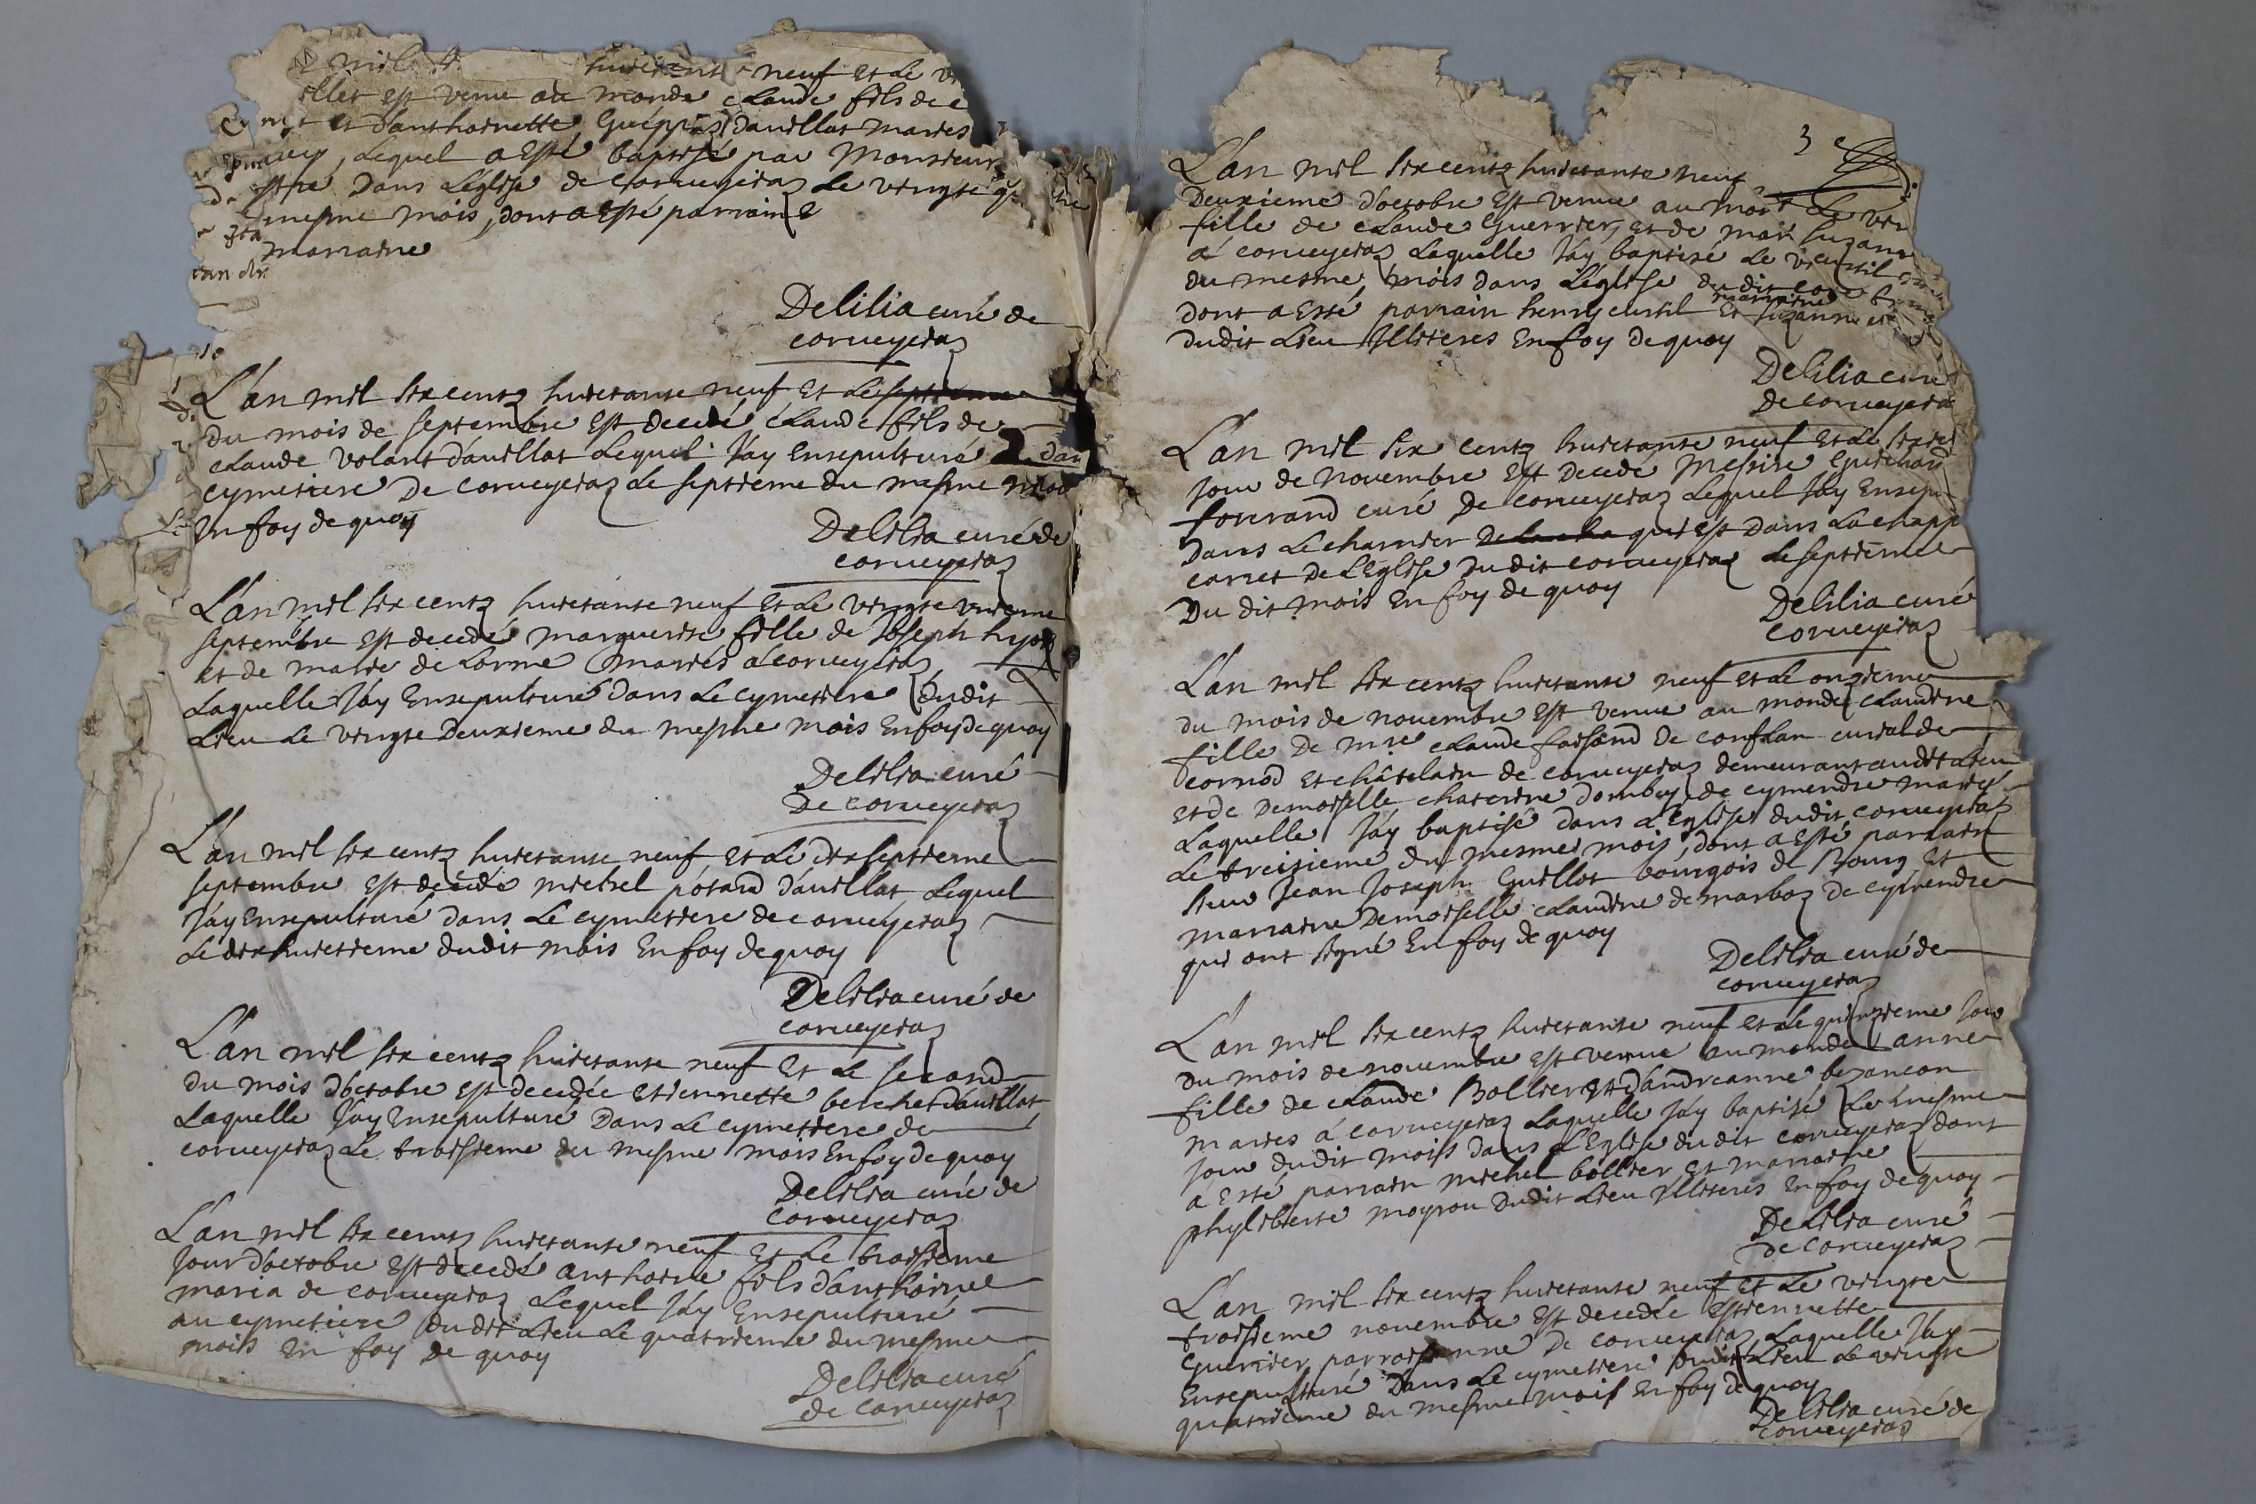 mil huictante neuf et le
illet est venu au monde claude fils de
et d'anthoinette Guéppaz d'avillat maries
lequel a esté baptisé par Monsieur
dans L'église de corveyciaz le vingte
mesme mois, dont a esté parrain
marraine
Delilia curé de
corveyciaz
L'an mil six centz huictante neuf et le septieme
du mois de septembre est decedé claude fils de
claude volant d'avillat lequel J'ay ensepulturé dan
cymetiere de corveyciaz le septieme du mesme mois
En foy de quoy
Delilia curé de
corveyciaz
L'an mil six centz huictante neuf et le vingte unieme
septembre est decedé marguerite fille de Joseph hyon
et de marie de Lorme mariés à corveyciaz
Laquelle J'ay Ensepulturé dans le cymetiere dudit
Lieu le vingte Deuxieme du mesme mois En foy de quoy
Delilia curé
De corveyciaz
L'an mil six centz huictante neuf et le dixseptieme
septembre est decedé michel pótard d'avillat lequel
J'ay Ensepulturé dans le cymetiere de corveyciaz
Le dixhuictieme dudit mois En foy de quoy
Delilia curé de
corveyciaz
L'an mil six centz huictante neuf et le second
du mois d'octobre est decedée etiennette berchet d'avillat
Laquelle J'ay ensepulturé Dans le cymetiere de
corveyciaz le troisieme du mesme mois En foy de quoy
Delilia curé de
corveyciaz
L'an mil six centz huictante neuf et le troisieme
Jour d'octobre est decedé anthoine fils d'anthoine
maria de corveyciaz lequel J'ay Ensepulturé
au cymetiere du dit lieu le quatrieme du mesme
mois en foy de quoy
Delilia curé
de corveyciaz
3
L'an mil six centz huictante neuf
Deuxieme d'octobre est venue au mon
fille de claude Guerrier et de
à corveyciaz Laquelle J'ay baptisé le
du mesme mois dans l'église du dit
marraine
dont a esté parrain henry curtil et suzanne
dudit Lieu Illiteres En foy de quoy
Delilia curé
De corveycia
L'an mil six centz huictante neuf et le sixie
Jour de Novembre est Decedé Messire Guichard
forerand curé De corveyciaz Lequel J'ay Ensepu
Dans le charnier qui est Dans La chapp
cornet De L'Eglise Du dit corveyciaz le septieme
Du dit mois En foy de quoy
Delilia curé
corveyciaz
L'an mil six centz huictante neuf et le onzieme
du mois de novembre est venue au monde claudine
fille De mre claude faisand De conflan curial de
cornod et châtelain de corveyciaz demeurant audit Lieu
et de Demoiselle chaterine dombey de cymendre mariés
Laquelle J'ay baptisé dans L'Eglise dudit corveyciaz
Le treizieme du mesme mois, dont a esté parrain
sieur Jean Joseph Guillot bourgois de Bourg et
marraine Demoiselle claudine de marboz de cymendre
qui ont signé En foy de quoy
Delilia curé de
corveyciaz
L'an mil six centz huictante neuf et le quinzieme Jour
Du mois de novembre est venue au monde anne
fille de claude Bollier et d'andreanne bezancon
maries à corveyciaz Laquelle J'ay baptisé Le mesme
Jour dudit mois Dans L'Eglise du dit corveyciaz dont
a esté parrain michel bollier et marraine
phyliberte moyrou Dudit Lieu Illiteres En foy de quoy
DeLilia curé
de corveyciaz
L'an mil six centz huictante neuf et le vingte
troisieme novembre est decedée Estiennette
Guerrier parroissienne De corveyciaz Laquelle J'ay
Ensepulturé Dans le cymetiere dudit Lieu le vingte
quatrieme du mesme mois En foy de quoy
Delilia curé de
corveyciaz